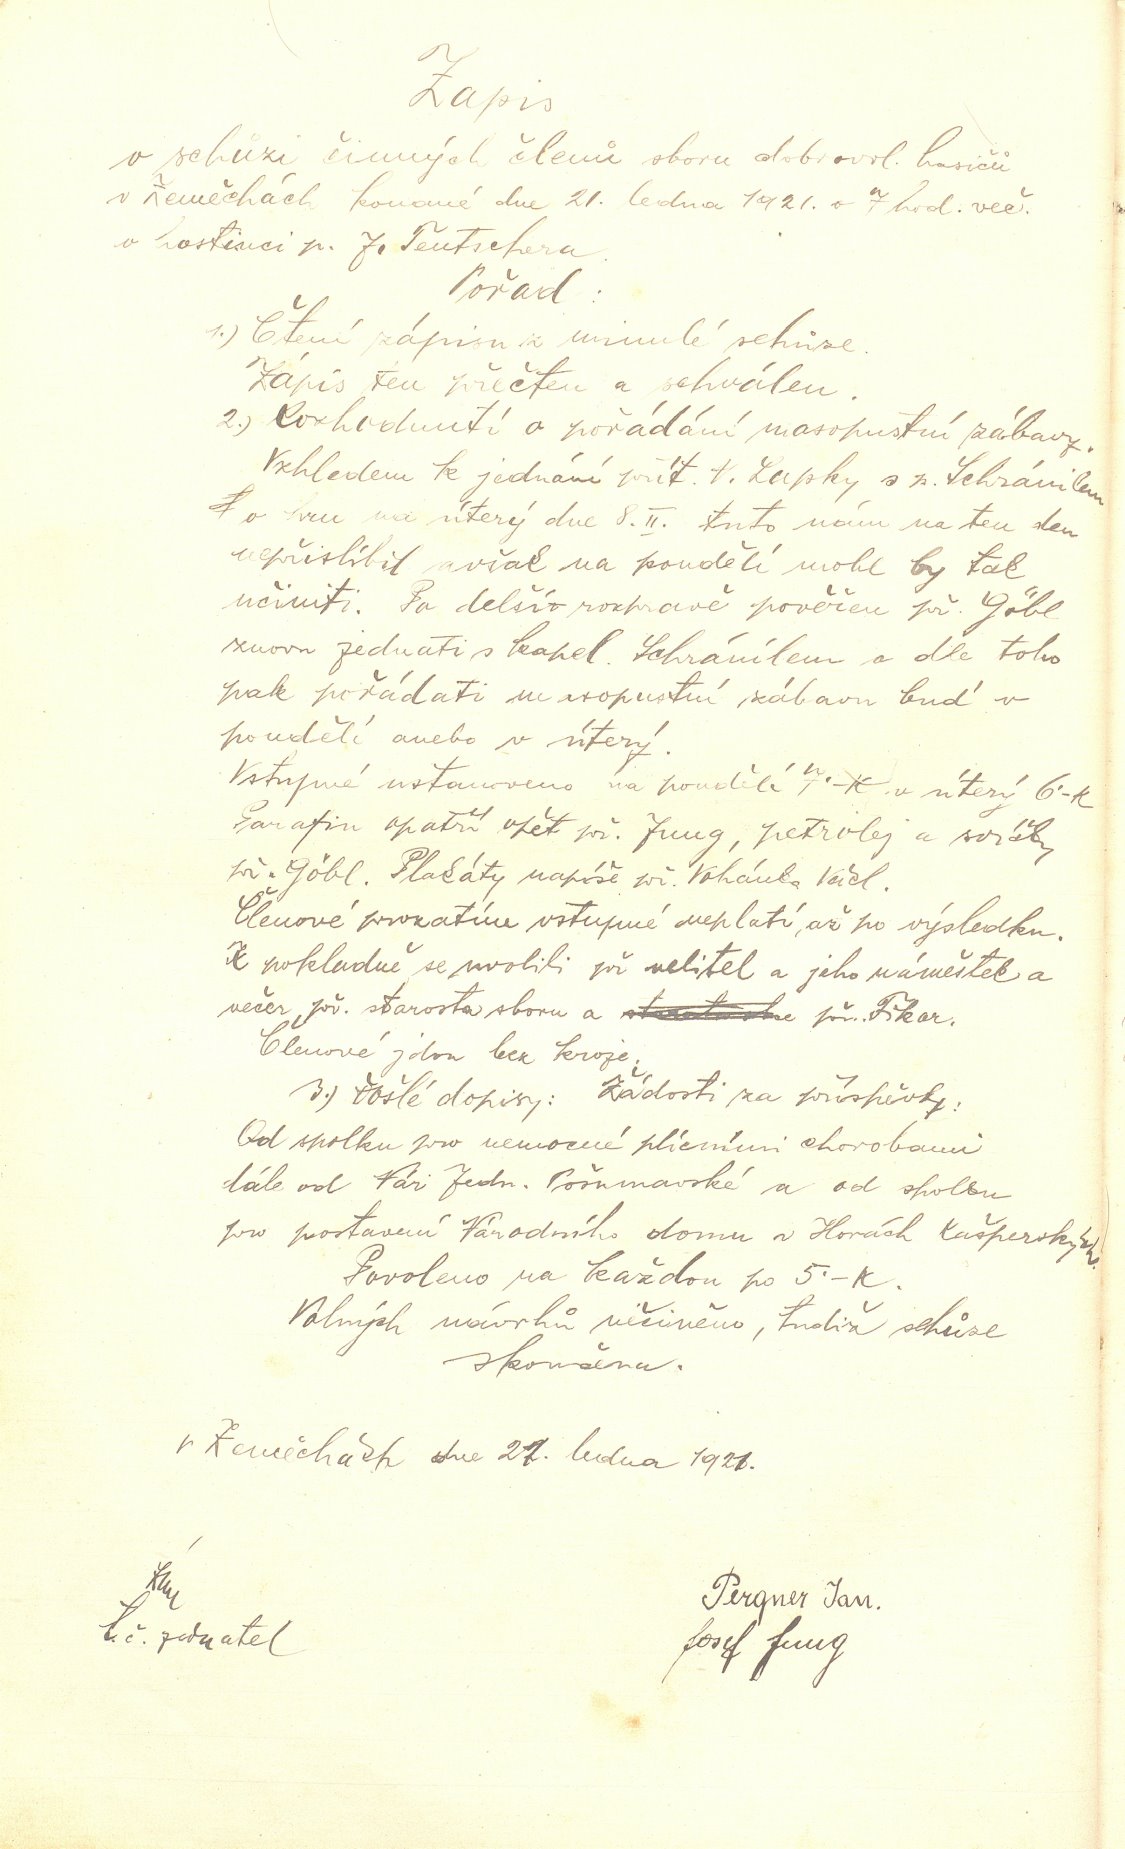 Zapis
o schůzi činných členů sboru dobrovol. hasičů
v Zeměchách konané dne 21. ledna 1921. o 7 hod. več.
v hostinci p. J. Teutschera.
Pořad:
1.) Čtení zápisu z minulé schůze.
Zápis ten přečten a schválen.
2.) Rozhodnutí o pořádání masopustní zábavy.
Vzhledem k jednání přít. V. Zapky s p. Schránilem
o hru na úterý dne 8. II. tuto nám na ten den
nepřislíbil avšak na pondělí mohl by tak
učiniti. Po delší rozpravě pověřen př. Göbl
znovu jednati s kapel. Schránilem a dle toho
pak pořádati masopustní zábavu buď v
pondělí anebo v úterý.
Vstupné ustanoveno na pondělí 7·-K v úterý 6·-K
Parafin opatří opět př. Jung, petrolej a svíčky
př. Göbl. Plakáty napíše př. Vohánka Václ.
Členové prozatím vstupné neplatí, až po výsledku.
K pokladně se uvolili př velitel a jeho náměstek a
večer př. starosta sboru a př. Fikar.
Členové jdou bez kroje.
3.) Došlé dopisy: Žádosti za příspěvky:
Od spolku pro nemocné plícními chorobami
dále od Nár. Jedn. Pošumavské a od spolku
pro postavení Národního domu v Horách Kašperských.
Povoleno na každou po 5·-K.
Volných návrhů ničiněno, tudíž schůze
skončena.
v Zeměchách dne 21. ledna 1921.
t.č. jednatel
Pergner Jan.
Josef Jung